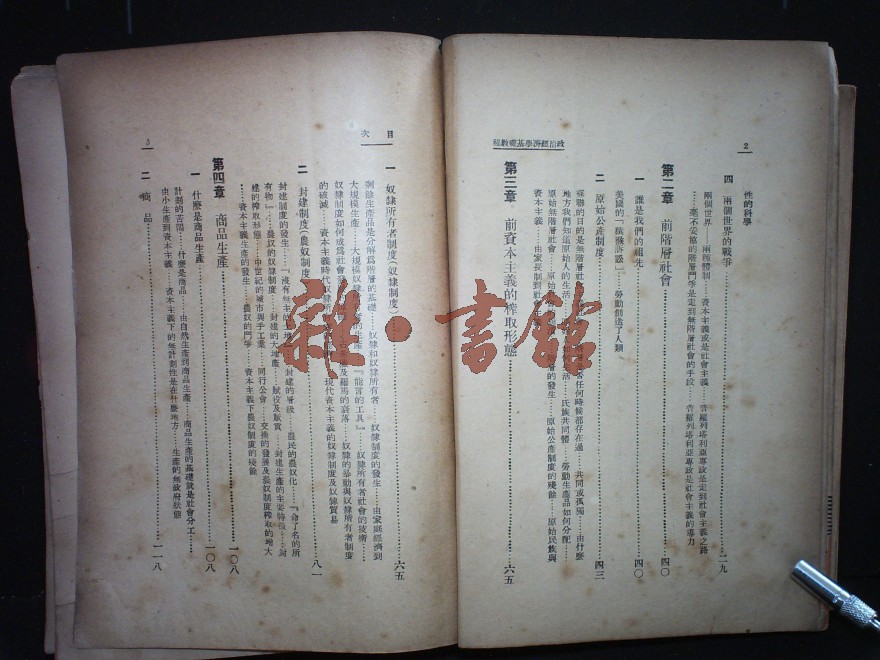 2
性的科學
四 兩個世界的戰爭……二九
兩個世界……兩種體制……資本主義或是社會主義……普羅列塔利亞專政是走到社會主義之路
……毫不妥協的階層鬥爭是走到無階層社會的手段……普羅列塔利亞專政是走到社會主義的導力
第二章 前階層社會……四〇
一 誰是我們的祖先……四〇
美國的「猿猴訴訟」……勞動創造了人類
二 原始公產制度……四三
蘇聯的目的是無階層社會……者任何時候都存在過……共同或孤獨……由什麼
地方我們知道原始人的生活……生活……氏族共同體……勞動生產品如何分配……
原始無階層社會……原始……層的發生……原始公產制度的殘餘……原始民族與
資本主義……由家長制到社會
第三章 前資本主義的榨取形態……六五
政治經濟學基礎教程
目次
3
一 奴隸所有者制度(奴隸制度)……六五
剩餘生產品是分解為階層的基礎……奴隸和奴隸所有者……奴隸制度的發生……由家庭經濟到
大規模生產……大規模奴隸所有者的生產……『能言的工具』……奴隸所有者社會的技術……
奴隸制度如何成為社會發……及羅馬的衰落……奴隸的暴動與奴隸所有者制度
的破滅……資本主義時代奴隸所……現代資本主義的奴隸制度及奴隸貿易
二 封建制度(農奴制度)……八一
封建制度的發生……『沒有無主的土地』……封建的層級……農民的農奴化……『命了名的所
有物』……農奴的奴隸制度……封建的大地產……賦役及賦貢……封建生產的主要特徵……封
建的榨取形態……中世紀的城市與手工業……同行公會……交換的發展及農奴制度榨取的增大
……資本主義生產的發生……農奴的鬥爭……資本主義下農奴制度的殘餘
第四章 商品生產……一〇八
一 什麼是商品生產……一〇八
計劃的苦悶……什麼是商品……由自然生產到商品生產……商品生產的基礎就是社會分工……
由小生產到資本主義……資本主義下的無計劃性是在什麼地方……生產的無政府狀態
二 商品……一一八
雜·書館